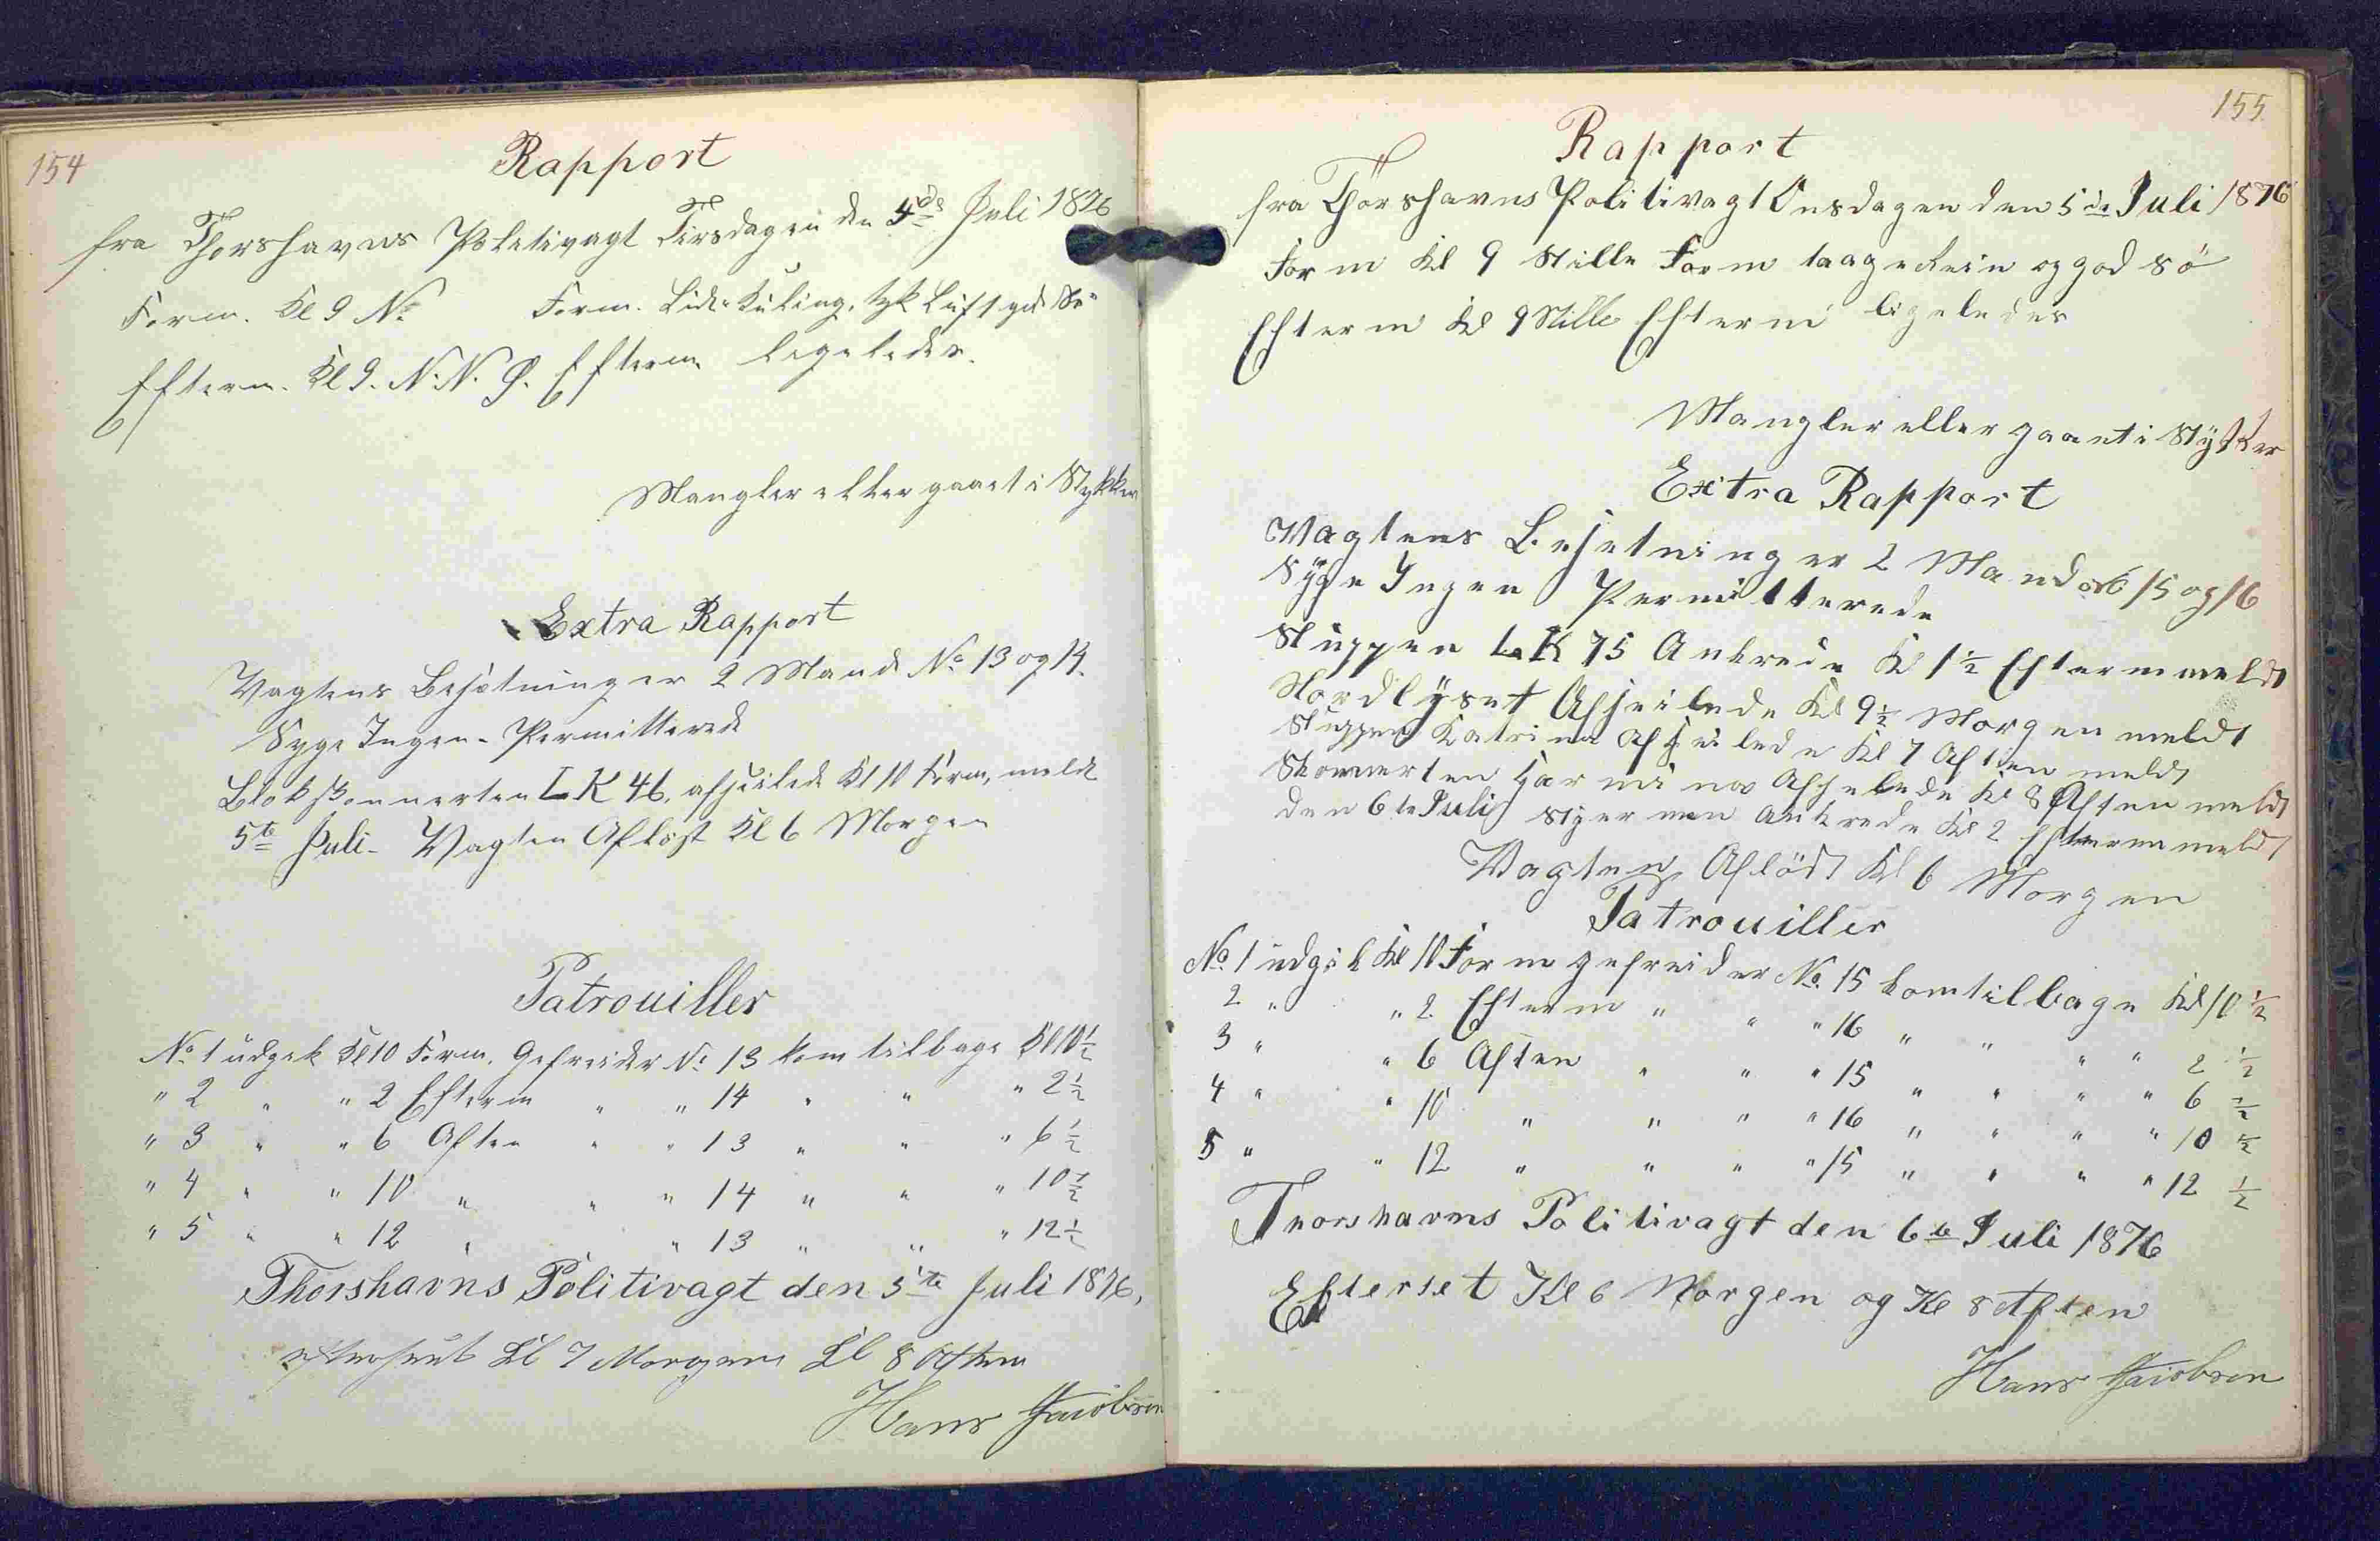 154
Rapport
fra Thorshavns Politivagt Tirsdagen den 4de Juli 1876
Form. Kl 9 N. Form. Liden Kuling, tyk Luft god Sø
Efterm. Kl 9. N.N.Ø. Efterm ligeledes.
Mangler eller gaaet i Stykker
Extra Rapport
Vagtens Besætning er 2 Mand No 13 og 14.
Syge Ingen - Permitterede
Blokskonnerten LK 46. afseilede Kl 10 Form, meldt
5te Juli - Vagten Afløst Kl 6 Morgen
Patrouiller
No 1 udgik Kl 10 Form. Gefreider No 13 kom tilbage Kl 10 1/2
" 2 " " 2 Efterm " " 14 " " " 2 1/2
" 3 " " 6 Aften " " 13 " " " 6 1/2
" 4 " " 10 " " " 14 " " " 10 1/2
" 5 " " 12 " " 13 " " " 12 1/2
Thorshavns Politivagt den 5te Juli 1876,
efterseet Kl 7 Morgen Kl 8 Aften
Hans Jacobsen
155
Rapport
fra Thorshavns Politivagt Onsdagen den 5de Juli 1876
Form Kl 9 Stille Form taage Rein og god sö
Efterm Kl 9 Stille Efterm ligeledes
Mangler eller gaaet i Stykker
Extra Rapport
Vagtens Besetning er 2 Mand No 15 og 16
Syge Ingen Permitterede
Sluppen LK 75 Ankrede Kl 1 1/2 Efterm meldt
Nordlyset Afseilede Kl 9 1/2 Morgen meldt
Sluppen Katrina Afseilede Kl 7 Aften meldt
Skonnerten Afselede Kl 8 Aften meldt
den 6te Juli Ankrede Kl 2 Efterm meldt
Vagten Aflödt Kl 6 Morgen
Patrouiller
No. 1 udgik Kl 10 Form gefreider No. 15 kom tilbage Kl 10 1/2
2 " " 2 Efterm " " " 16 " " " " 2 1/2
3 " " 6 Aften " " " 15 " " " " 6 1/2
4 " " 10 " " " " 16 " " " " 10 1/2
5 " " 12 " " " " 15 " " " " 12 1/2
Thorshavns Politivagt den 6te Juli 1876
Efterset Kl 6 Morgen og Kl 8 Aften
Hans Jacobsen